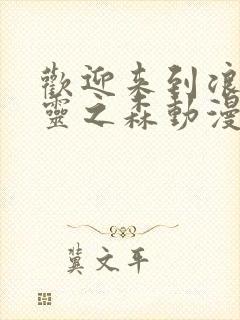 歡迎来到浪
靈之森動漫
冀文平